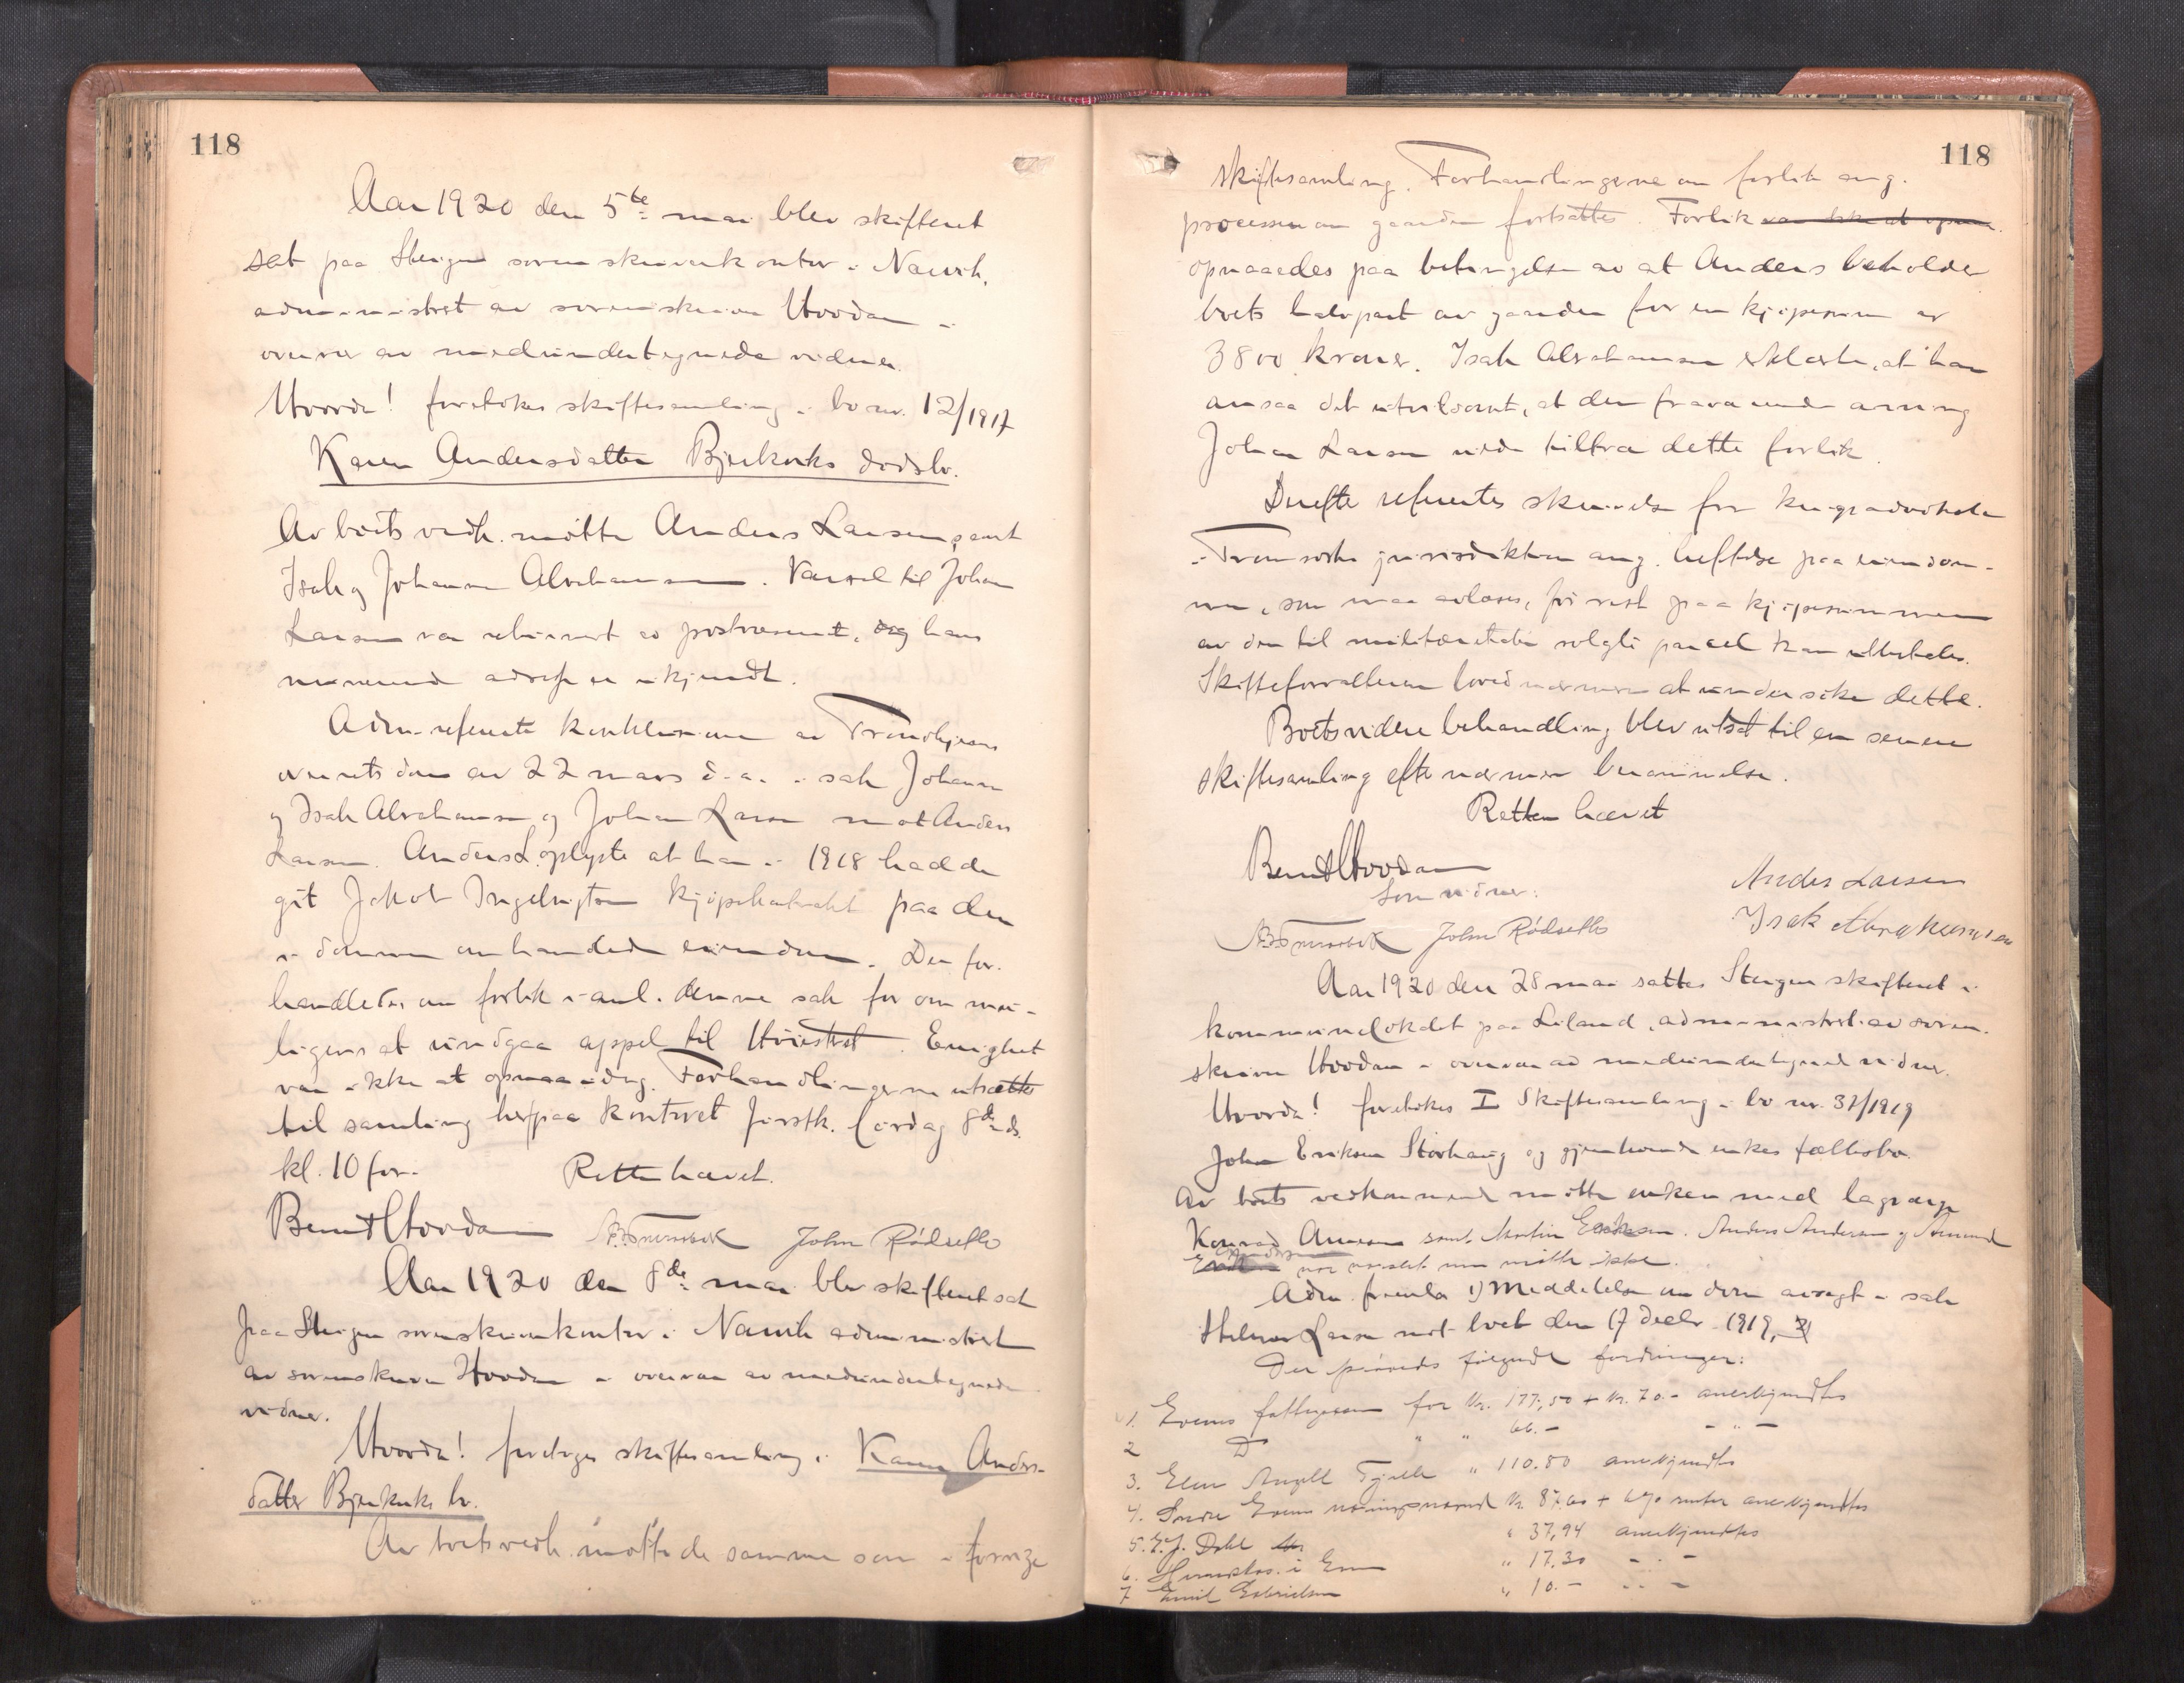 118
Aar 1920 den 5te mai blev skifteret
sat paa Steigen sorenskriverkontor i Narvik,
administret av sorenskriver Hovdan i
overvær av medundertegnede vidner.
Hvorda! foretokes skiftesamling i bo nr. 12/1917
Karen Andersdatter Bjerkviks dødsbo.
Av boets vedk. møtte Anders Larsen, samt
Isak og Johannes Abrahamsen. Varsel til Johan
Larsen var returnert av postvæsenet, og hans
nuværende adresse er ukjendt.
Adm. refererte konklusionen av Trondhjems
overrets dom av 22 mars d.a. i sak Johannes
og Isak Abrahamsen og Johan Larsen mot Anders
Larsen. Anders L. oplyste at han i 1918 hadde
git Jakob Ingebrigtsen kjøpekontrakt paa den
i dommen omhandlede eiendom. Der for-
handledes om forlik i anl. denne sak for om mu-
ligens at undgaa appel til Høiesteret. Enighet
var ikke at opnaa idag. Forhandlingerne utsættes
til samling her paa kontoret førstk. lørdag 8de ds.
kl. 10 for. Retten hævet.
Bernt Hovdan John Rødseth
Aar 1920 den 8de mai blev skifteret sat
paa Steigen sorenskriverkontor i Narvik administret
av sorenskriver Hovdan i overvær av medundertegnede
vidner.
Hvorda! foretoges skiftesamling i Karen Anders-
datter Bjerkviks bo.
Av boets vedk. møtte de samme som i forrige
118
skiftesamling. Forhandlingerne om forlik ang.
processen om gaarden fortsattes. Forlik var ikke at opnaa.
opnaaedes paa betingelse av at Anders beholder
boets halvpart av gaarden for en kjøpesum av
3800 kroner. Isak Abrahamsen erklærte, at han
ansaa det utvilsomt, at den fraværende arving
Johan Larsen vilde tiltræ dette forlik.
Derefter refereertes skrivelse fra krigsadvokaten
i Tromsøske jurisdiktion ang. heftelse paa eiendom-
men, som maa avløses, før rest paa kjøpesummen
av den til militæretaten solgte parcel kan utbetales.
Skifteforvalteren lovet nærmere at undersøke dette.
Boets videre behandling blev utsat til en senere
skiftesamling efter nærmere berammelse.
Retten hævet
Bernt Hovdan
Som vidner:
John Rødseth
Anders Larsen
Isak Abrahamsen
Aar 1920 den 28 mai sattes Steigen skifteret i
kommunelokalet paa Liland, administret av soren-
skriver Hovdan i overvær av medundertegnede vidner.
Hvorda! foretokes I Skiftesamling i bo nr. 31/1919
Johan Eriksen Storhaug og gjenlevende enkes fællesbo.
Av boets vedkommende møtte enken med lagværge
Konrad Arnesen samt Martin Eriksen. Anders Andersen og Amund
Andersen var varslet men møtte ikke.
Adm. fremla 1) Meddelelse om dom avsagt i sak
Hilmar Larsen mot boet den 17 decbr. 1919, 2)
Der prøvedes følgende fordringer:
1. Evenes fattigvæsen for kr. 177,50 + kr. 70.- anerkjendtes
2 D " " 66.- - " -
3. Elen Angell Fjeld " 110.80 anerkjendtes
4. Indre Evenes kr. 87.60 + 6% renter anerkjendtes
5. E. J. Dahl " 37,94 anerkjendtes
6. " 17.30 - " -
7 Emil Gabrielsen " 10.- - " -